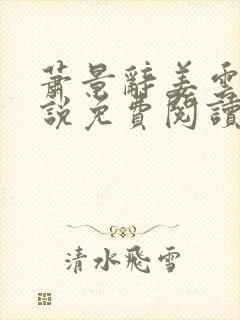 蕭景辭姜雲
說免費閱讀
清水飛雪